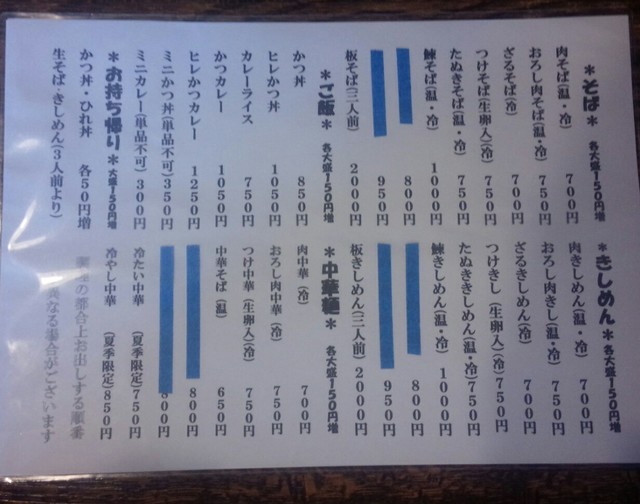 ＊そば＊ 各大盛150円増
肉そば(温・冷) 700円
おろし肉そば(温・冷) 750円
ざるそば(冷) 700円
つけそば(生卵入)(冷) 750円
たぬきそば(温・冷) 750円
鰊そば(温・冷) 1000円
800円
950円
板そば(三人前) 2000円
＊ご飯＊ 各大盛150円増
かつ丼 850円
ヒレかつ丼 1050円
カレーライス 750円
かつカレー 1050円
ヒレかつカレー 1250円
ミニかつ丼(単品不可) 350円
ミニカレー(単品不可) 300円
＊お持ち帰り＊ 大盛150円増
かつ丼・ひれ丼 各50円増
生そば・きしめん(3人前より)
＊きしめん＊ 各大盛150円増
肉きしめん(温・冷) 700円
おろし肉きし(温・冷) 750円
ざるきしめん(冷) 700円
つけきし(生卵入)(冷) 750円
たぬききしめん(温・冷) 750円
鰊きしめん(温・冷) 1000円
800円
950円
板きしめん(三人前) 2000円
＊中華麺＊ 各大盛150円増
肉中華(冷) 700円
おろし肉中華(冷) 750円
つけ中華(生卵入)(冷) 750円
中華そば(温) 650円
800円
800円
冷たい中華(夏季限定) 750円
冷やし中華(夏季限定) 850円
の都合上お出しする順番
異なる場合がございます